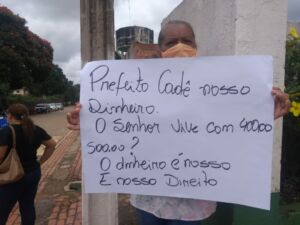 Prefeito Cadê nosso
Dinheiro.
O Senhor Vive com 400,00
500,00?
O dinheiro é nosso
E nosso Direito